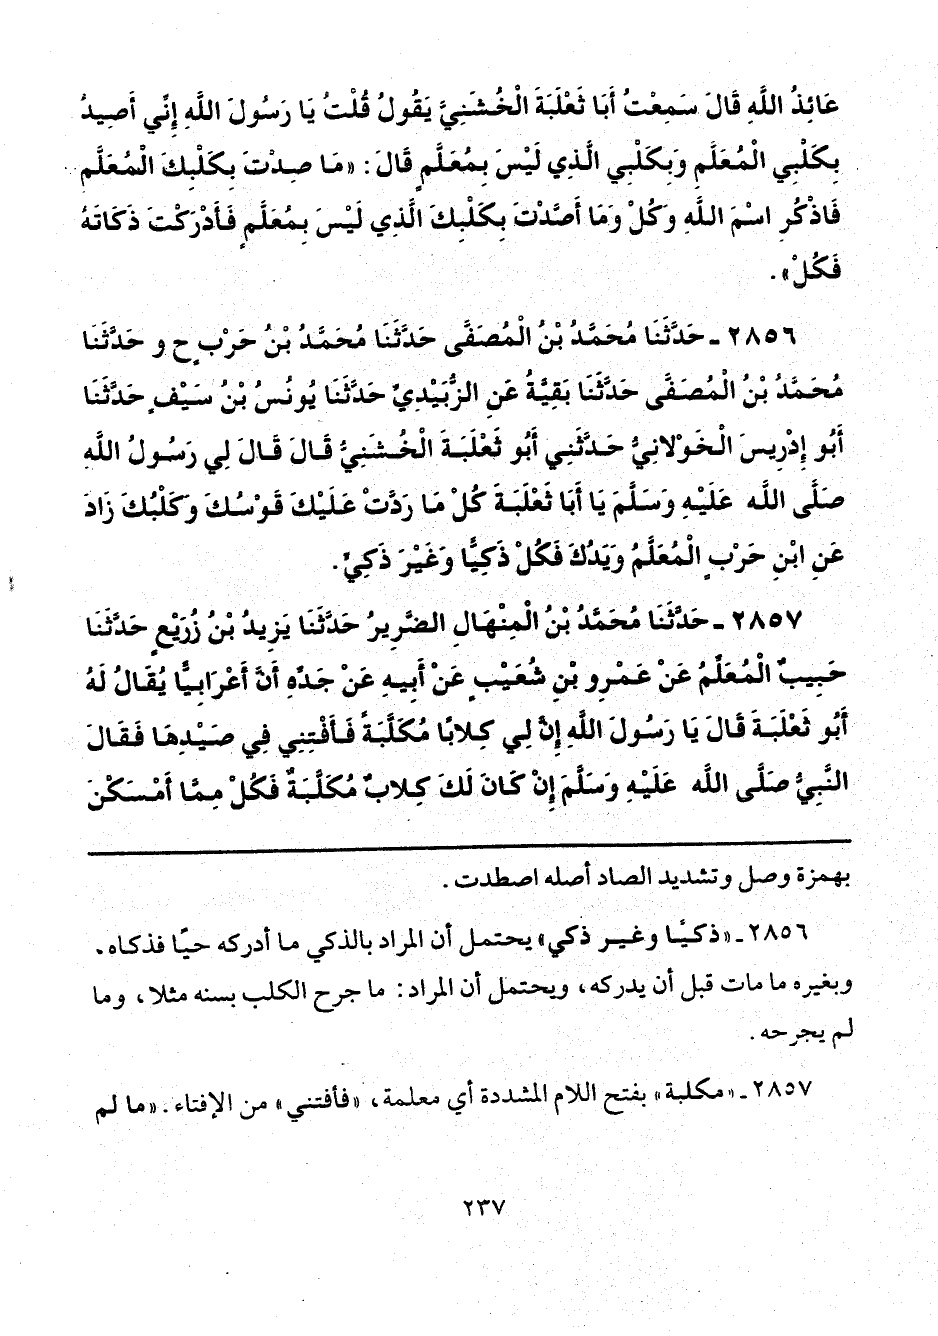 عَائِذُ اللَّهِ قَالَ سَمِعْتُ أَبَا ثَعْلَبَةَ الْخُشَنِيَّ يَقُولُ قُلْتُ يَا رَسُولَ اللَّهِ إِنِّي أَصِيدُ
بِكَلْبِي الْمُعَلَّمِ وَبِكَلْبِي الَّذِي لَيْسَ بِمُعَلَّمٍ قَالَ: «مَا صِدْتَ بِكَلْبِكَ الْمُعَلَّمِ
فَاذْكُرِ اسْمَ اللَّهِ وَكُلْ وَمَا أَصَّدْتَ بِكَلْبِكَ الَّذِي لَيْسَ بِمُعَلَّمٍ فَأَدْرَكْتَ ذَكَاتَهُ
فَكُلْ».
٢٨٥٦ ـ حَدَّثَنَا مُحَمَّدُ بْنُ الْمُصَفَّى حَدَّثَنَا مُحَمَّدُ بْنُ حَرْبٍ ح و حَدَّثَنَا
مُحَمَّدُ بْنُ الْمُصَفَّى حَدَّثَنَا بَقِيَّةُ عَنِ الزُّبَيْدِيِّ حَدَّثَنَا يُونُسُ بْنُ سَيْفٍ حَدَّثَنَا
أَبُو إِدْرِيسَ الْخَوْلَانِيُّ حَدَّثَنِي أَبُو ثَعْلَبَةَ الْخُشَنِيُّ قَالَ قَالَ لِي رَسُولُ اللَّهِ
صَلَّى اللَّه عَلَيْهِ وَسَلَّمَ يَا أَبَا ثَعْلَبَةَ كُلْ مَا رَدَّتْ عَلَيْكَ قَوْسُكَ وَكَلْبُكَ زَادَ
عَنِ ابْنِ حَرْبٍ الْمُعَلَّمُ وَيَدُكَ فَكُلْ ذَكِيًّا وَغَيْرَ ذَكِيٍّ.
٢٨٥٧ ـ حَدَّثَنَا مُحَمَّدُ بْنُ الْمِنْهَالِ الضَّرِيرُ حَدَّثَنَا يَزِيدُ بْنُ زُرَيْعٍ حَدَّثَنَا
حَبِيبٌ الْمُعَلِّمُ عَنْ عَمْرِو بْنِ شُعَيْبٍ عَنْ أَبِيهِ عَنْ جَدِّهِ أَنَّ أَعْرَابِيًّا يُقَالُ لَهُ
أَبُو ثَعْلَبَةَ قَالَ يَا رَسُولَ اللَّهِ إِنَّ لِي كِلَابًا مُكَلَّبَةً فَأَفْتِنِي فِي صَيْدِهَا فَقَالَ
النَّبِيُّ صَلَّى اللَّه عَلَيْهِ وَسَلَّمَ إِنْ كَانَ لَكَ كِلَابٌ مُكَلَّبَةٌ فَكُلْ مِمَّا أَمْسَكْنَ
بهمزة وصل وتشديد الصاد أصله اصطدت.
٢٨٥٦ ـ «ذكيًا وغير ذكي» يحتمل أن المراد بالذكي ما أدركه حيًا فذكاه،
وبغيره ما مات قبل أن يدركه، ويحتمل أن المراد: ما جرح الكلب بسنه مثلا، وما
لم يجرحه.
٢٨٥٧ ـ «مكلبة» بفتح اللام المشددة أي معلمة، «فأفتني» من الإفتاء. «ما لم
٢٣٧